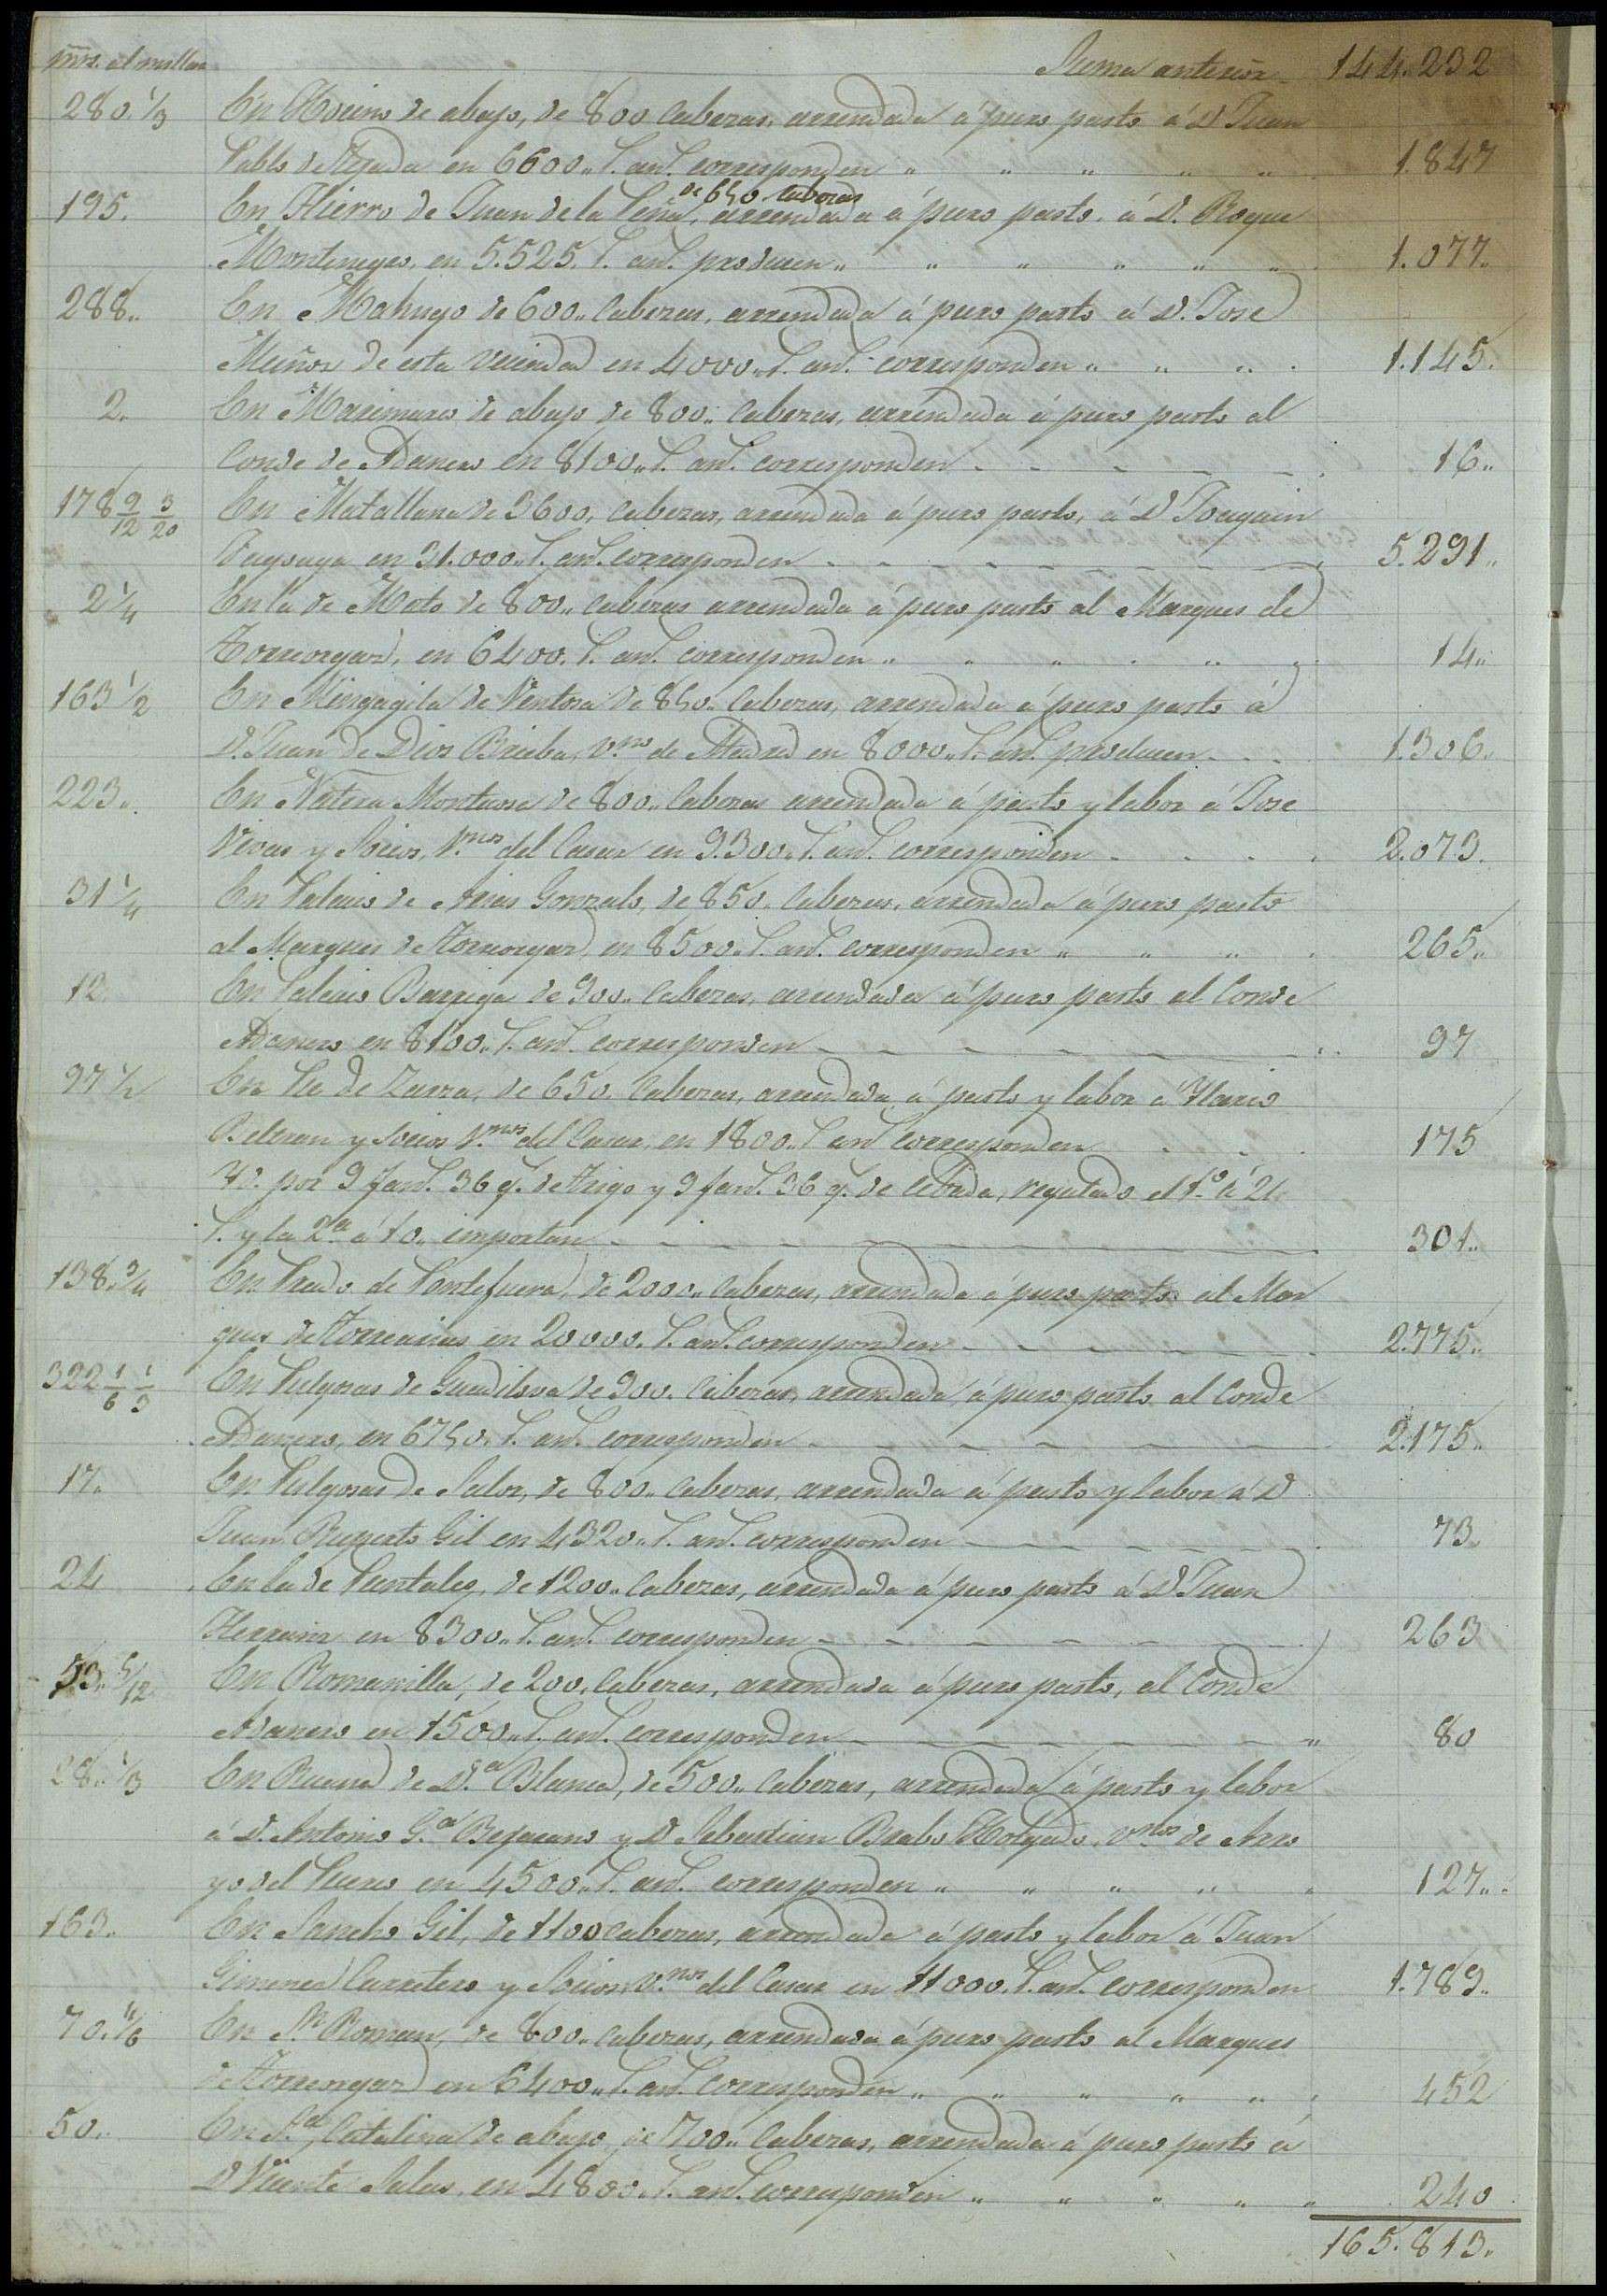 mrs. al millar Suma anterior 144.232
280. 1/3 En Hocino de abajo, de 800 Cabezas, arrendada á puro pasto á D Juan
Pablo de Tejada en 6600.. r. an. corresponden 1.847
195. En Hierro de Juan de la Peña, de 650 cabezas arrendada á puro pasto á D. Roque
Montenegro, en 5.525. r. an. producen.. 1.077..
288.. En Mahugo de 600.. Cabezas, arrendada á puro pasto á D. Jose
Muñoz de esta vecindad en 4000.. r. an. corresponden.. 1.145.
2. En Marimarco de abajo de 800.. Cabezas, arrendada á puro pasto al
Conde de Adanero en 8100.. r. an. corresponden 16..
178 9/12 3/20 En Matallana de 3600, Cabezas, arrendada á puro pasto, á D Joaquin
en 31.000.. r. an. corresponden 5.291..
2 1/4 En la de Mato de 800.. Cabezas arrendada á puro pasto al Marques de
Torreorgaz, en 6400. r. an. corresponden.. 14..
163 1/2 En Mingagila de Ventosa de 850.. Cabezas, arrendada á puro pasto á
D. Juan de Dios Brieba, v.no de Madrid en 8000.. r. an. producen 1.306.
223.. En Natera Montuosa de 800.. Cabezas arrendada á pasto y labor á Jose
Vivas y Socios, V.nos del Casar en 9.300.. r. an. corresponden 2.073.
31 1/4 En Palacio de Arias Gonzalo, de 850. Cabezas, arrendada á puro pasto
al Marques de Torreorgaz, en 8500.. r. an. corresponden.. 265..
12. En Palacio Barriga de 900.. Cabezas, arrendada á puro pasto al Conde
Adanero en 8100.. r. an. corresponden 97
97 1/2 En Pla de Zurra, de 650. Cabezas, arrendada á pasto y labor á Ylario
Beltran y Socios V.nos del Casar, en 1800.. r an corresponden 175
Yd. por 9 fan. 36 q. de trigo y 9 fan. 36 q. de cebada, regulado el 1.º á 21
r. y la 2.ª á 10.. importan 301..
138. 3/4 En Prado de Pontefuera, de 2000.. Cabezas, arrendada á puro pasto al Mar
ques de Torrearias en 20000. r. an. corresponden 2.775..
322 1/6 1/9 En Pulgosas de Guadilova de 900. Cabezas, arrendada á puro pasto al Conde
Adanero, en 6750. r. an. corresponden 2.175..
17. En Pulgosas de Salor, de 800.. Cabezas, arrendada á pasto y labor á D
Juan Ruperto Gil en 4320.. r. an. corresponden 73.
24 En la de Puntales, de 1200.. Cabezas, arrendada á puro pasto á D Juan
Herranz en 8300.. r. an. corresponden 263
53.. 5/12 En Romanilla, de 200, Cabezas, arrendada á puro pasto, al Conde
Adanero en 1500.. r. an. corresponden 80
28.. 1/3 En Rucend de D.ª Blanca, de 500.. Cabezas, arrendada á pasto y labor
á D. Antonio G.ª Bejarano y D Sebastian Brabo Holgado, v.nos de Arro
yo del Puerco en 4500.. r. an. corresponden.. 127...
163.. En Sancho Gil, de 1100 Cabezas, arrendada á pasto y labor á Juan
Gimenez Carretero y Socios, V.nos del Casar en 11000. r. an. corresponden 1.789..
70. 4/6 En S.n Roman, de 800.. Cabezas, arrendada á puro pasto al Marques
de Torreorgaz en 6400.. r. an. corresponden.. 452
50.. En S.ta Catalina de abajo, de 700.. Cabezas, arrendada á puro pasto á
D Vicente Salas, en 4800.. r. an. corresponden.. 240
165.813.